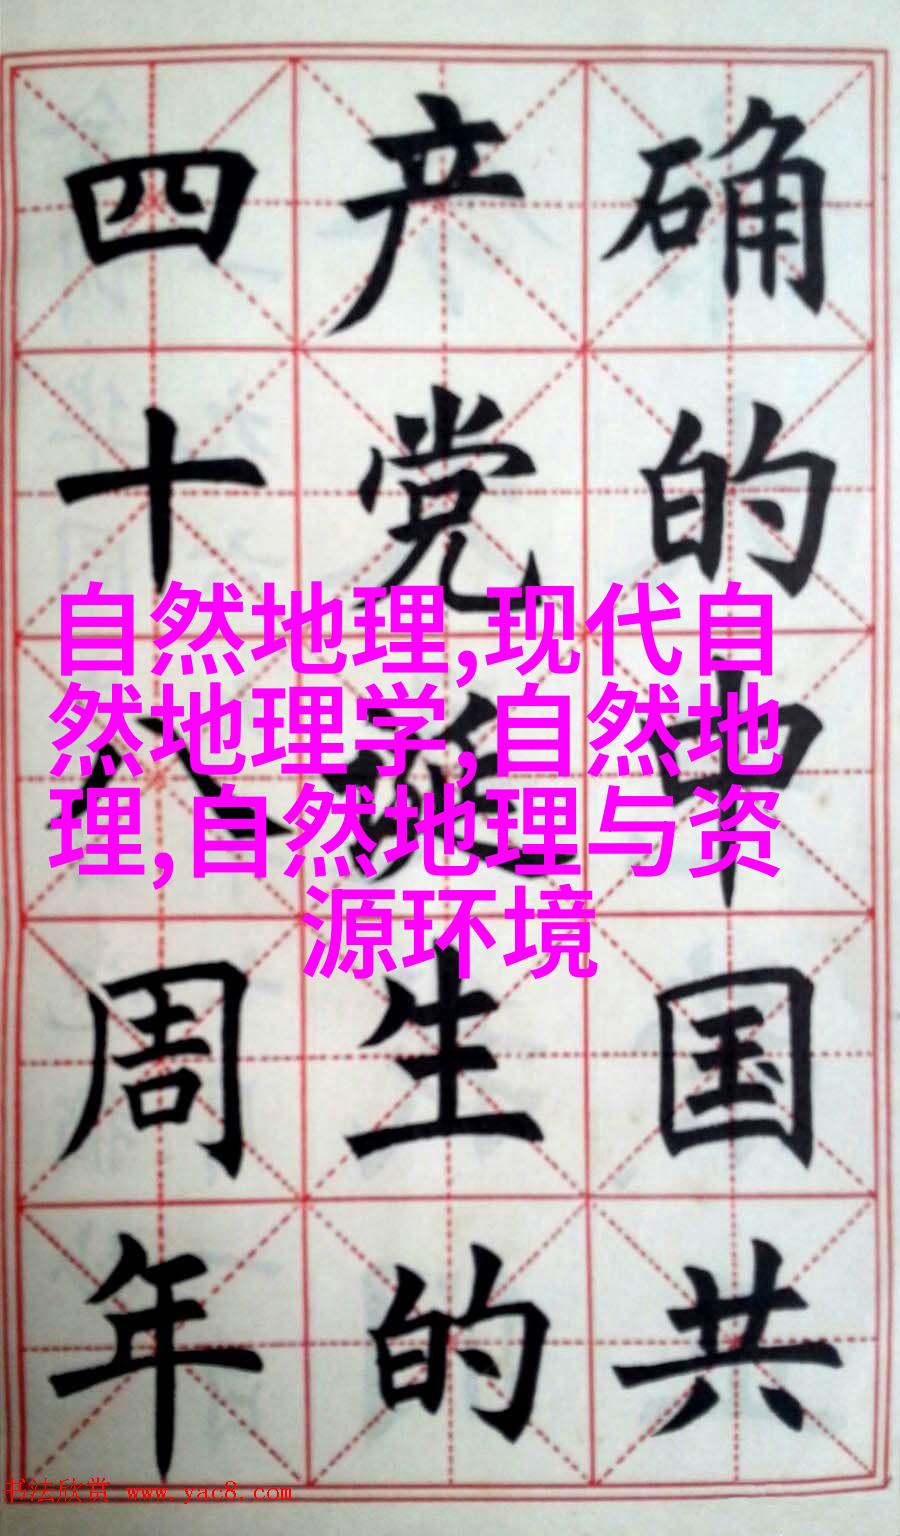 确的中国共
产党诞生的
四十八周年
自然地理,现代自
然地理学,自然地
理,自然地理与资
源环境
书法欣赏 www.yac8.com